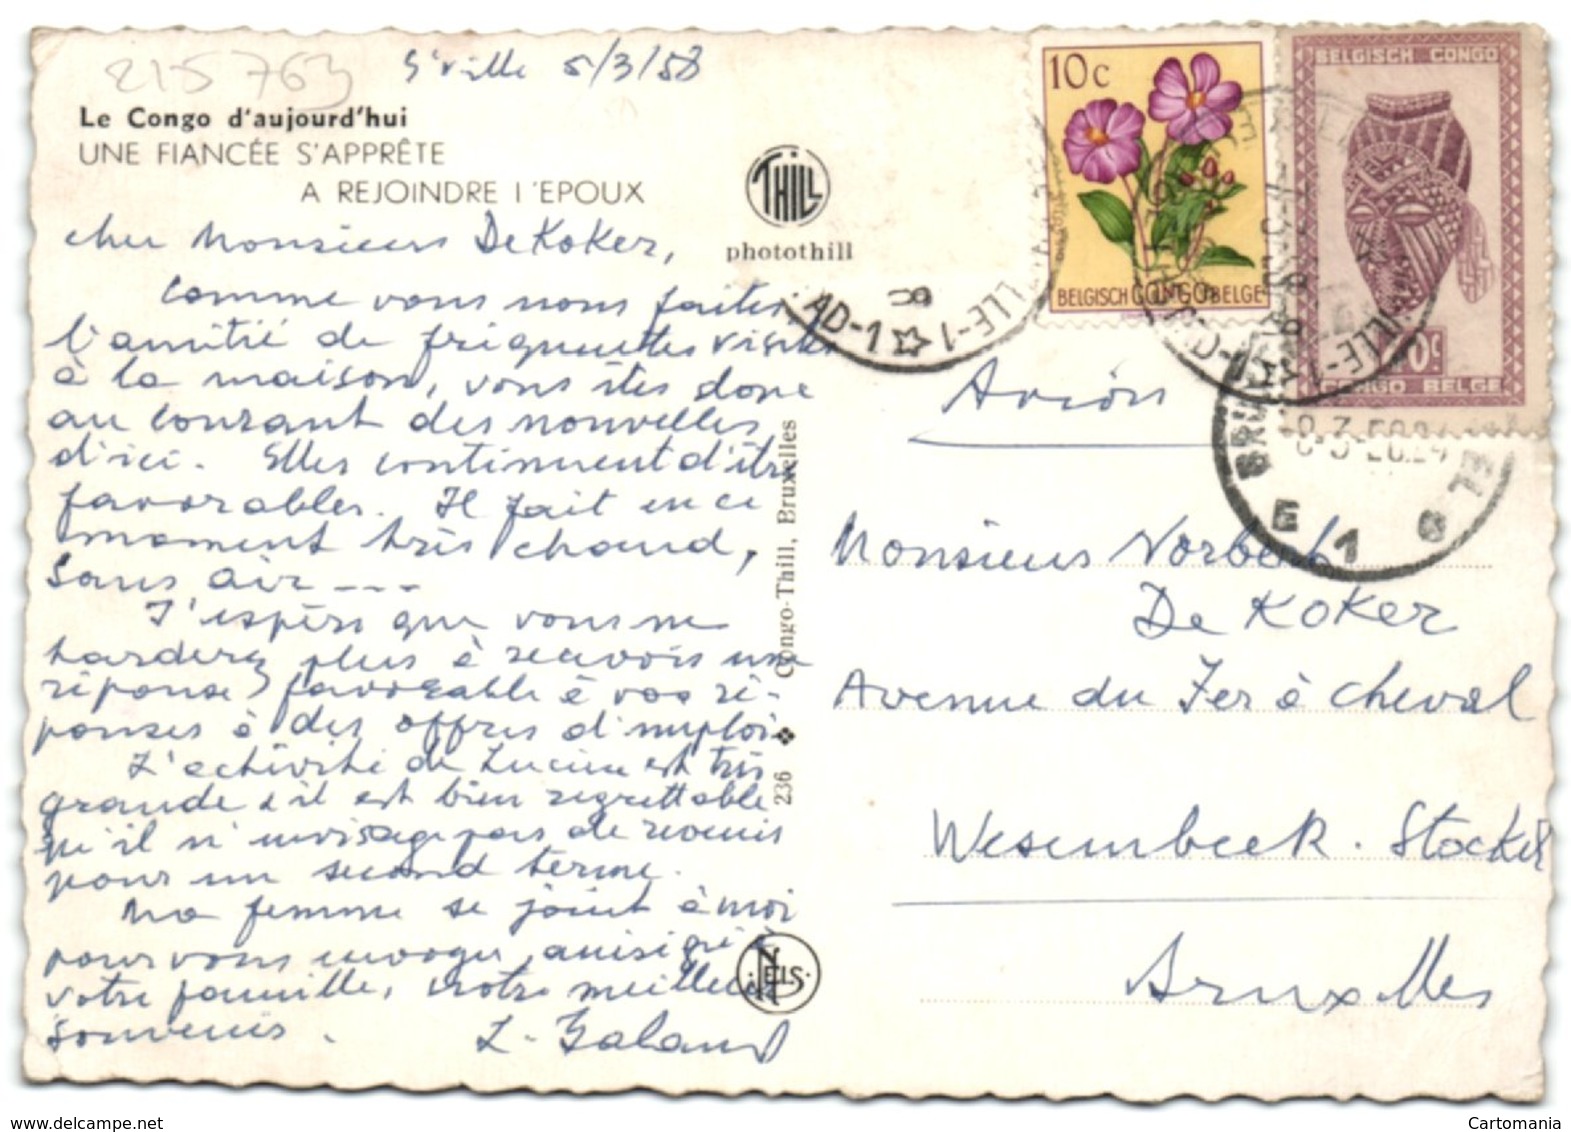 215763
E'ville 5/3/58
Le Congo d'aujourd'hui
UNE FIANCÉE S'APPRÊTE
A REJOINDRE l'EPOUX
THILL
photothill
cher Monsieur De Koker,
Comme vous nous faites
l'amitié de fréquentes visites
à la maison, vous êtes donc
au courant des nouvelles
d'ici. Elles continuent d'être
favorables. Il fait en ce
moment très chaud,
sans air ---
J'espère que vous ne
tarderez plus à recevoir une
réponse favorable à vos ré-
ponses à des offres d'emploi
L'activité de Lucien est très
grande & il est bien regrettable
qu'il n'envisage pas de revenir
pour un second terme.
Ma femme se joint à moi
pour vous envoyer, ainsi qu'à
votre famille, notre meilleur
souvenir.
L.
236 Congo-Thill, Bruxelles
NELS
10c
BELGISCH CONGO BELGE
BELGISCH CONGO
CONGO BELGE
AD-1 ☆ LLE-1
BRUXELLES
E 1 B
Avion
Monsieur Norbert
De Koker
Avenue du Fer à Cheval
Wesembeek - Stockel
Bruxelles
Cartomania